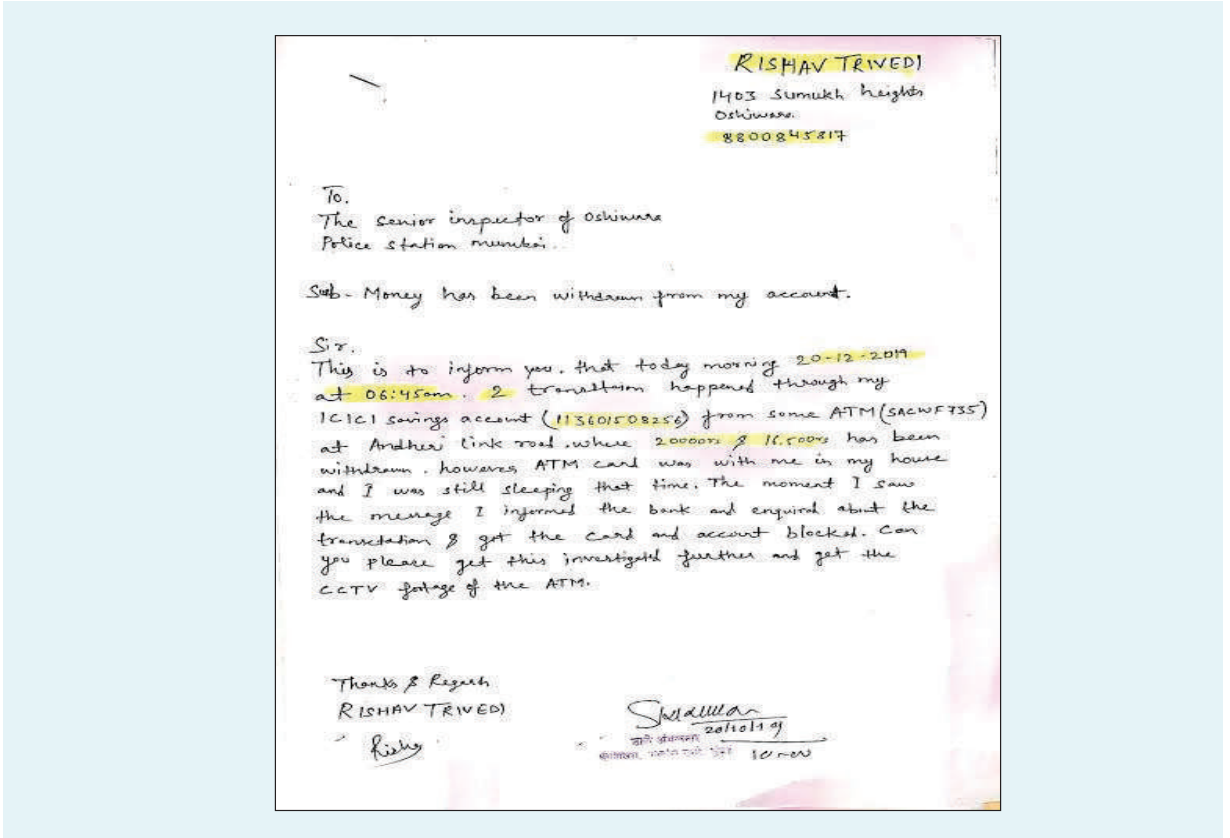 RISHAV TRIVEDI
1403 Sumukh heights
Oshiwara.
8800845817
To.
The senior inspector of Oshiwara
Police station mumbai..
Sub- Money has been withdrawn from my account.
Sir.
This is to inform you. that today morning 20-12-2019
at 06:45am. 2 happened through my
ICICI savings account (113601508256) from some ATM (SACWF735)
at Andheri link road. where 20000rs & 16,500rs has been
withdrawn. however, ATM card was with me in my house
and I was still sleeping that time. The moment I saw
the message I informed the bank and enquired about the
& got the card and account blocked. Can
you please get this investigated further and get the
CCTV footage of the ATM.
Thanks & Regards
RISHAV TRIVEDI
20/10/19